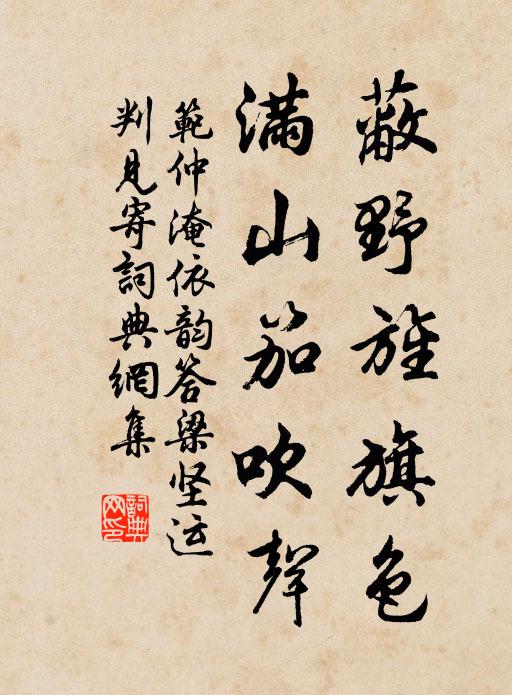 蔽野旌旗色
滿山笳吹聲
範仲淹依韵答梁坚运
判見寄詞典網集
詞典
网印